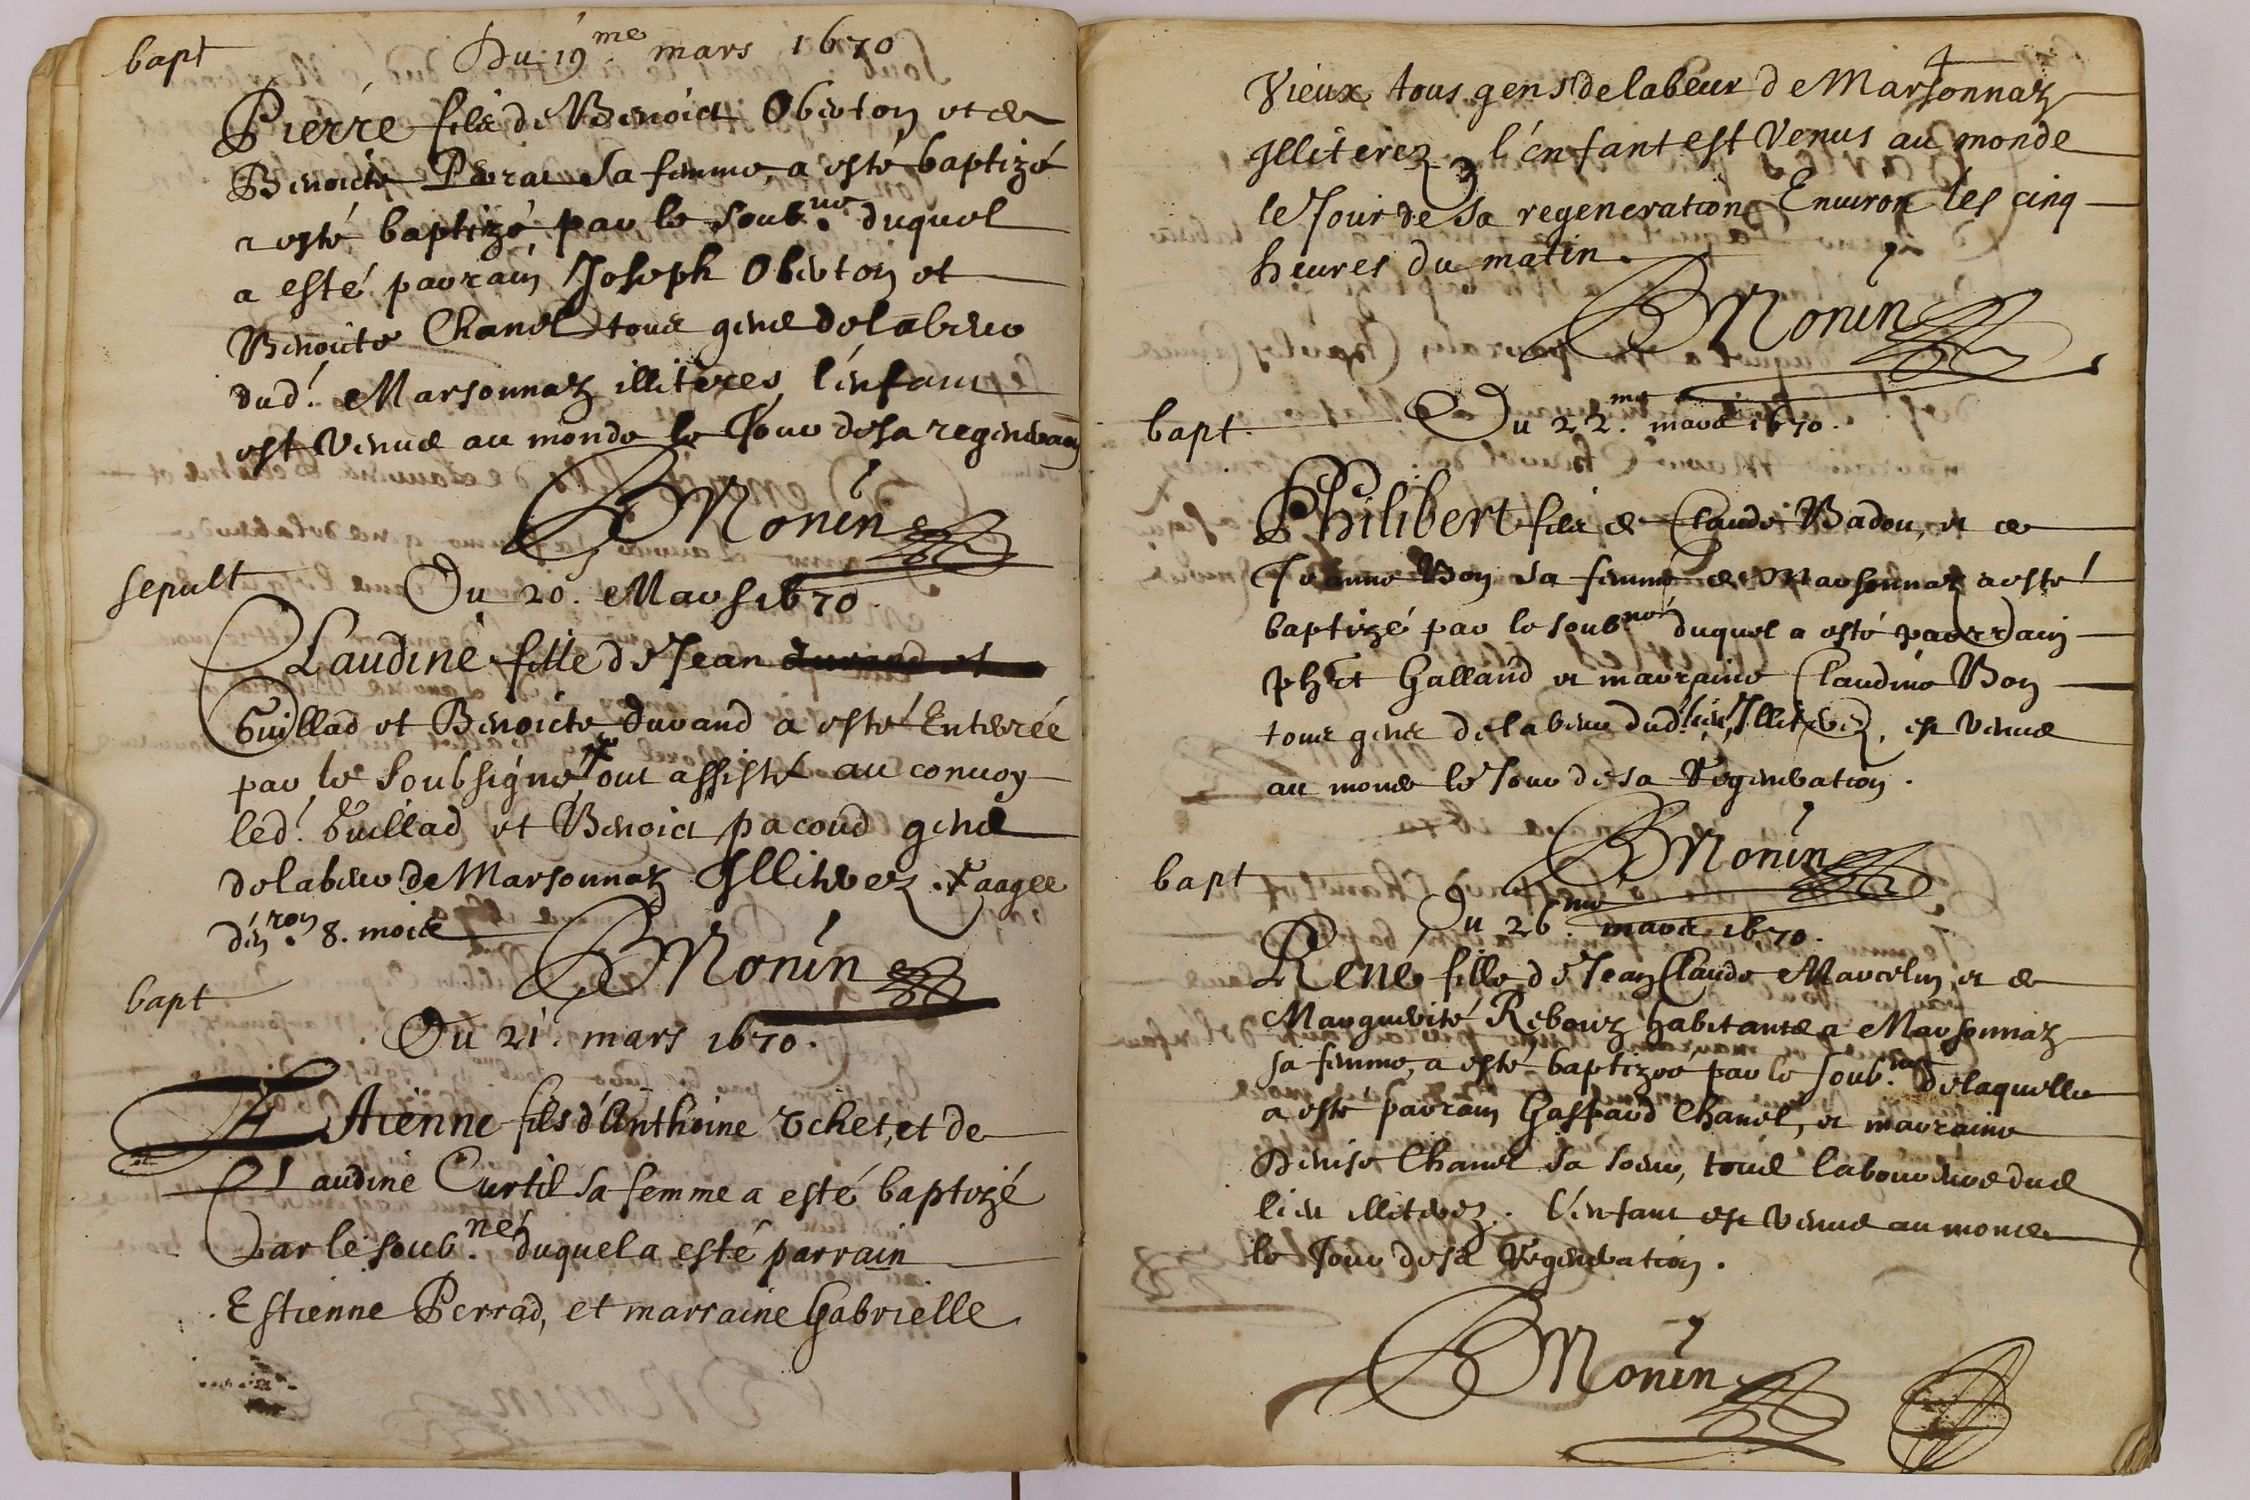 bapt
Du 19.me mars 1670
Pierre fils de Benoict Obierton et de
Benoicte Perrat sa femme, a esté baptizé
a esté baptizé, par le soub.né duquel
a esté parrain Joseph Obierton et
Benoicte Chanel tous gens de labeur
dud.t Marsonnaz illiteres, l'enfant
est venus au monde le Jour de sa regeneraôn
BMonin
sepult
Du 20. Mars 1670.
CLaudine fille de Jean
Guillad et Benoicte durand a esté Enterrée
par le soubsigné ont assisté au convoy
led.t Guillad et Benoict pacoud gens
de labeur de Marsonnaz Illiterez. aagee
d'en.ron 8. mois
BMonin
bapt
Du 21. mars 1670.
Atienne fils d'Anthoine Vchet, et de
Claudine Curtil sa femme a esté baptizé
Par le soub.né duquel a esté parrain
Estienne Perrad, et marraine Gabrielle
4
Vieux, tous gens de labeur de Marsonnaz
Illiterez, l'enfant est Venus au monde
le Jour de sa regeneration Enuiron les cinq
heures du matin.
BMonin
bapt.
Du 22.me mars 1670.
Philibert fils de Claude Badou, et de
Jeanne Bon sa femme de Marsonnaz a esté
baptizé par le soub.né duquel a esté parrain
phbt Galland et marraine Claudine Bon
tous gens de labeur dud.t lieu, Illiterez, est venus
au monde le Jour de sa Regeneration.
BMonin
bapt
Du 26.me mars 1670.
René fille de Jean Claude Marcelin, et de
Marguerite Rebouz habitants a Marsonnaz
sa femme, a esté baptizée par le soub.né de laquelle
a esté parrain Gaspard Chanel, et marraine
Denise Chanel sa soeur, tous laboureurs dud
lieu illiterez. L'enfant est venus au monde
le Jour de sa Regeneration.
BMonin